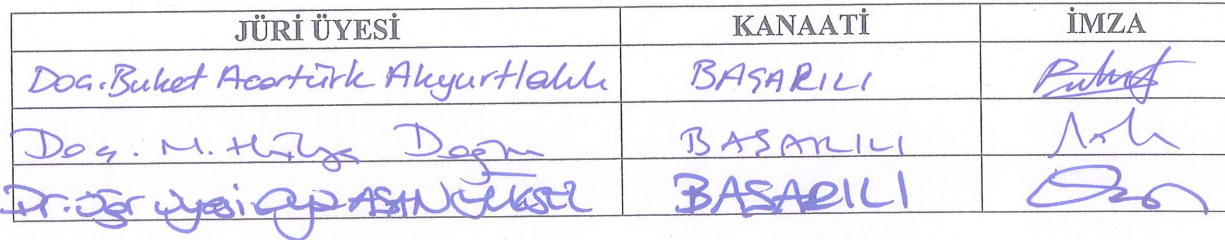 JÜRİ ÜYESİ KANAATİ İMZA
Doç. Buket Acartürk BAŞARILI
Doç. M. Hülya Doğru BAŞARILI
Dr. Öğr. Üyesi ASAN YÜKSEL BAŞARILI